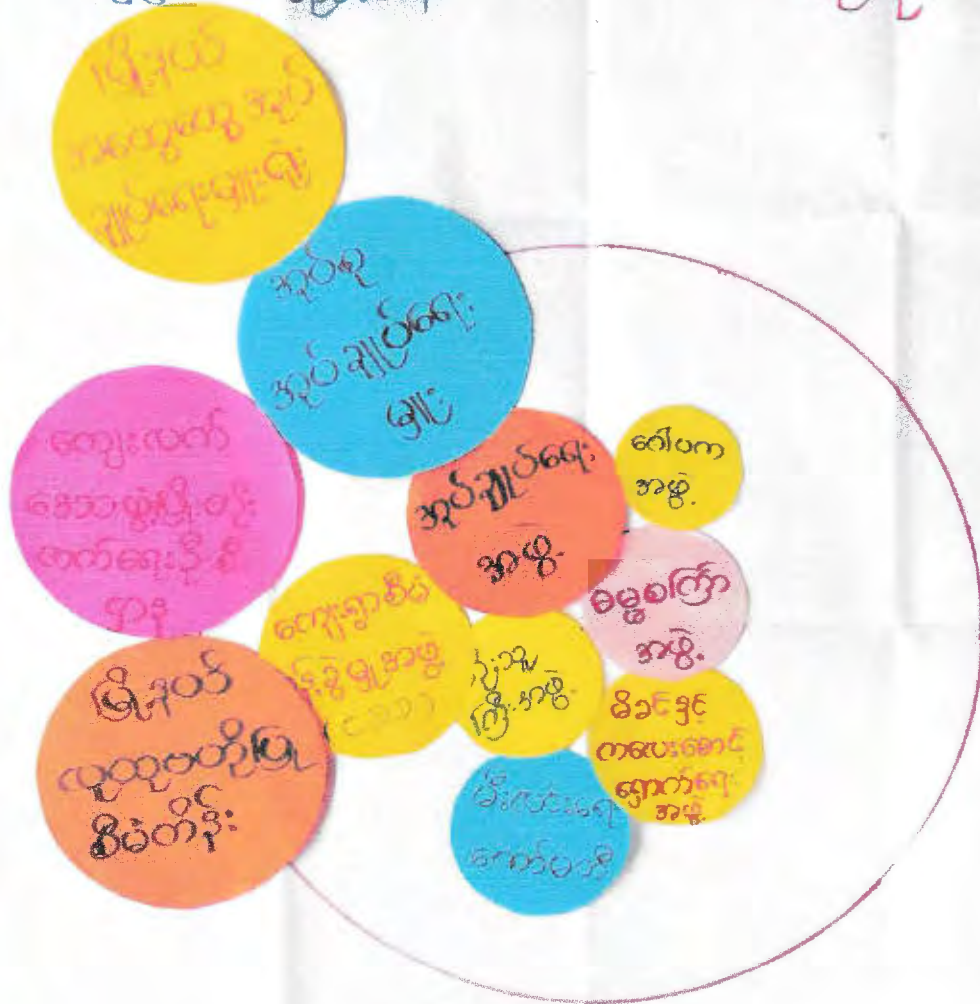 မြို့နယ်
အထွေထွေအုပ်
ချုပ်ရေးမှူးရုံး
အုပ်စု
အုပ်ချုပ်ရေး
မှူး
ကျေးလက်
ဒေသဖွံ့ဖြိုးတိုး
တက်ရေးဦးစီး
ဌာန
အုပ်ချုပ်ရေး
အဖွဲ့
ဂေါပက
အဖွဲ့
ဓမ္မစကြာ
အဖွဲ့
ကျေးရွာစီမံ
ခန့်ခွဲမှုအဖွဲ့
ကြီးအဖွဲ့
မိခင်နှင့်
ကလေးစောင့်
ရှောက်ရေး
အဖွဲ့
မြို့နယ်
လူထုဗဟိုပြု
စီမံကိန်း
မီးလင်းရေး
ကော်မတီ